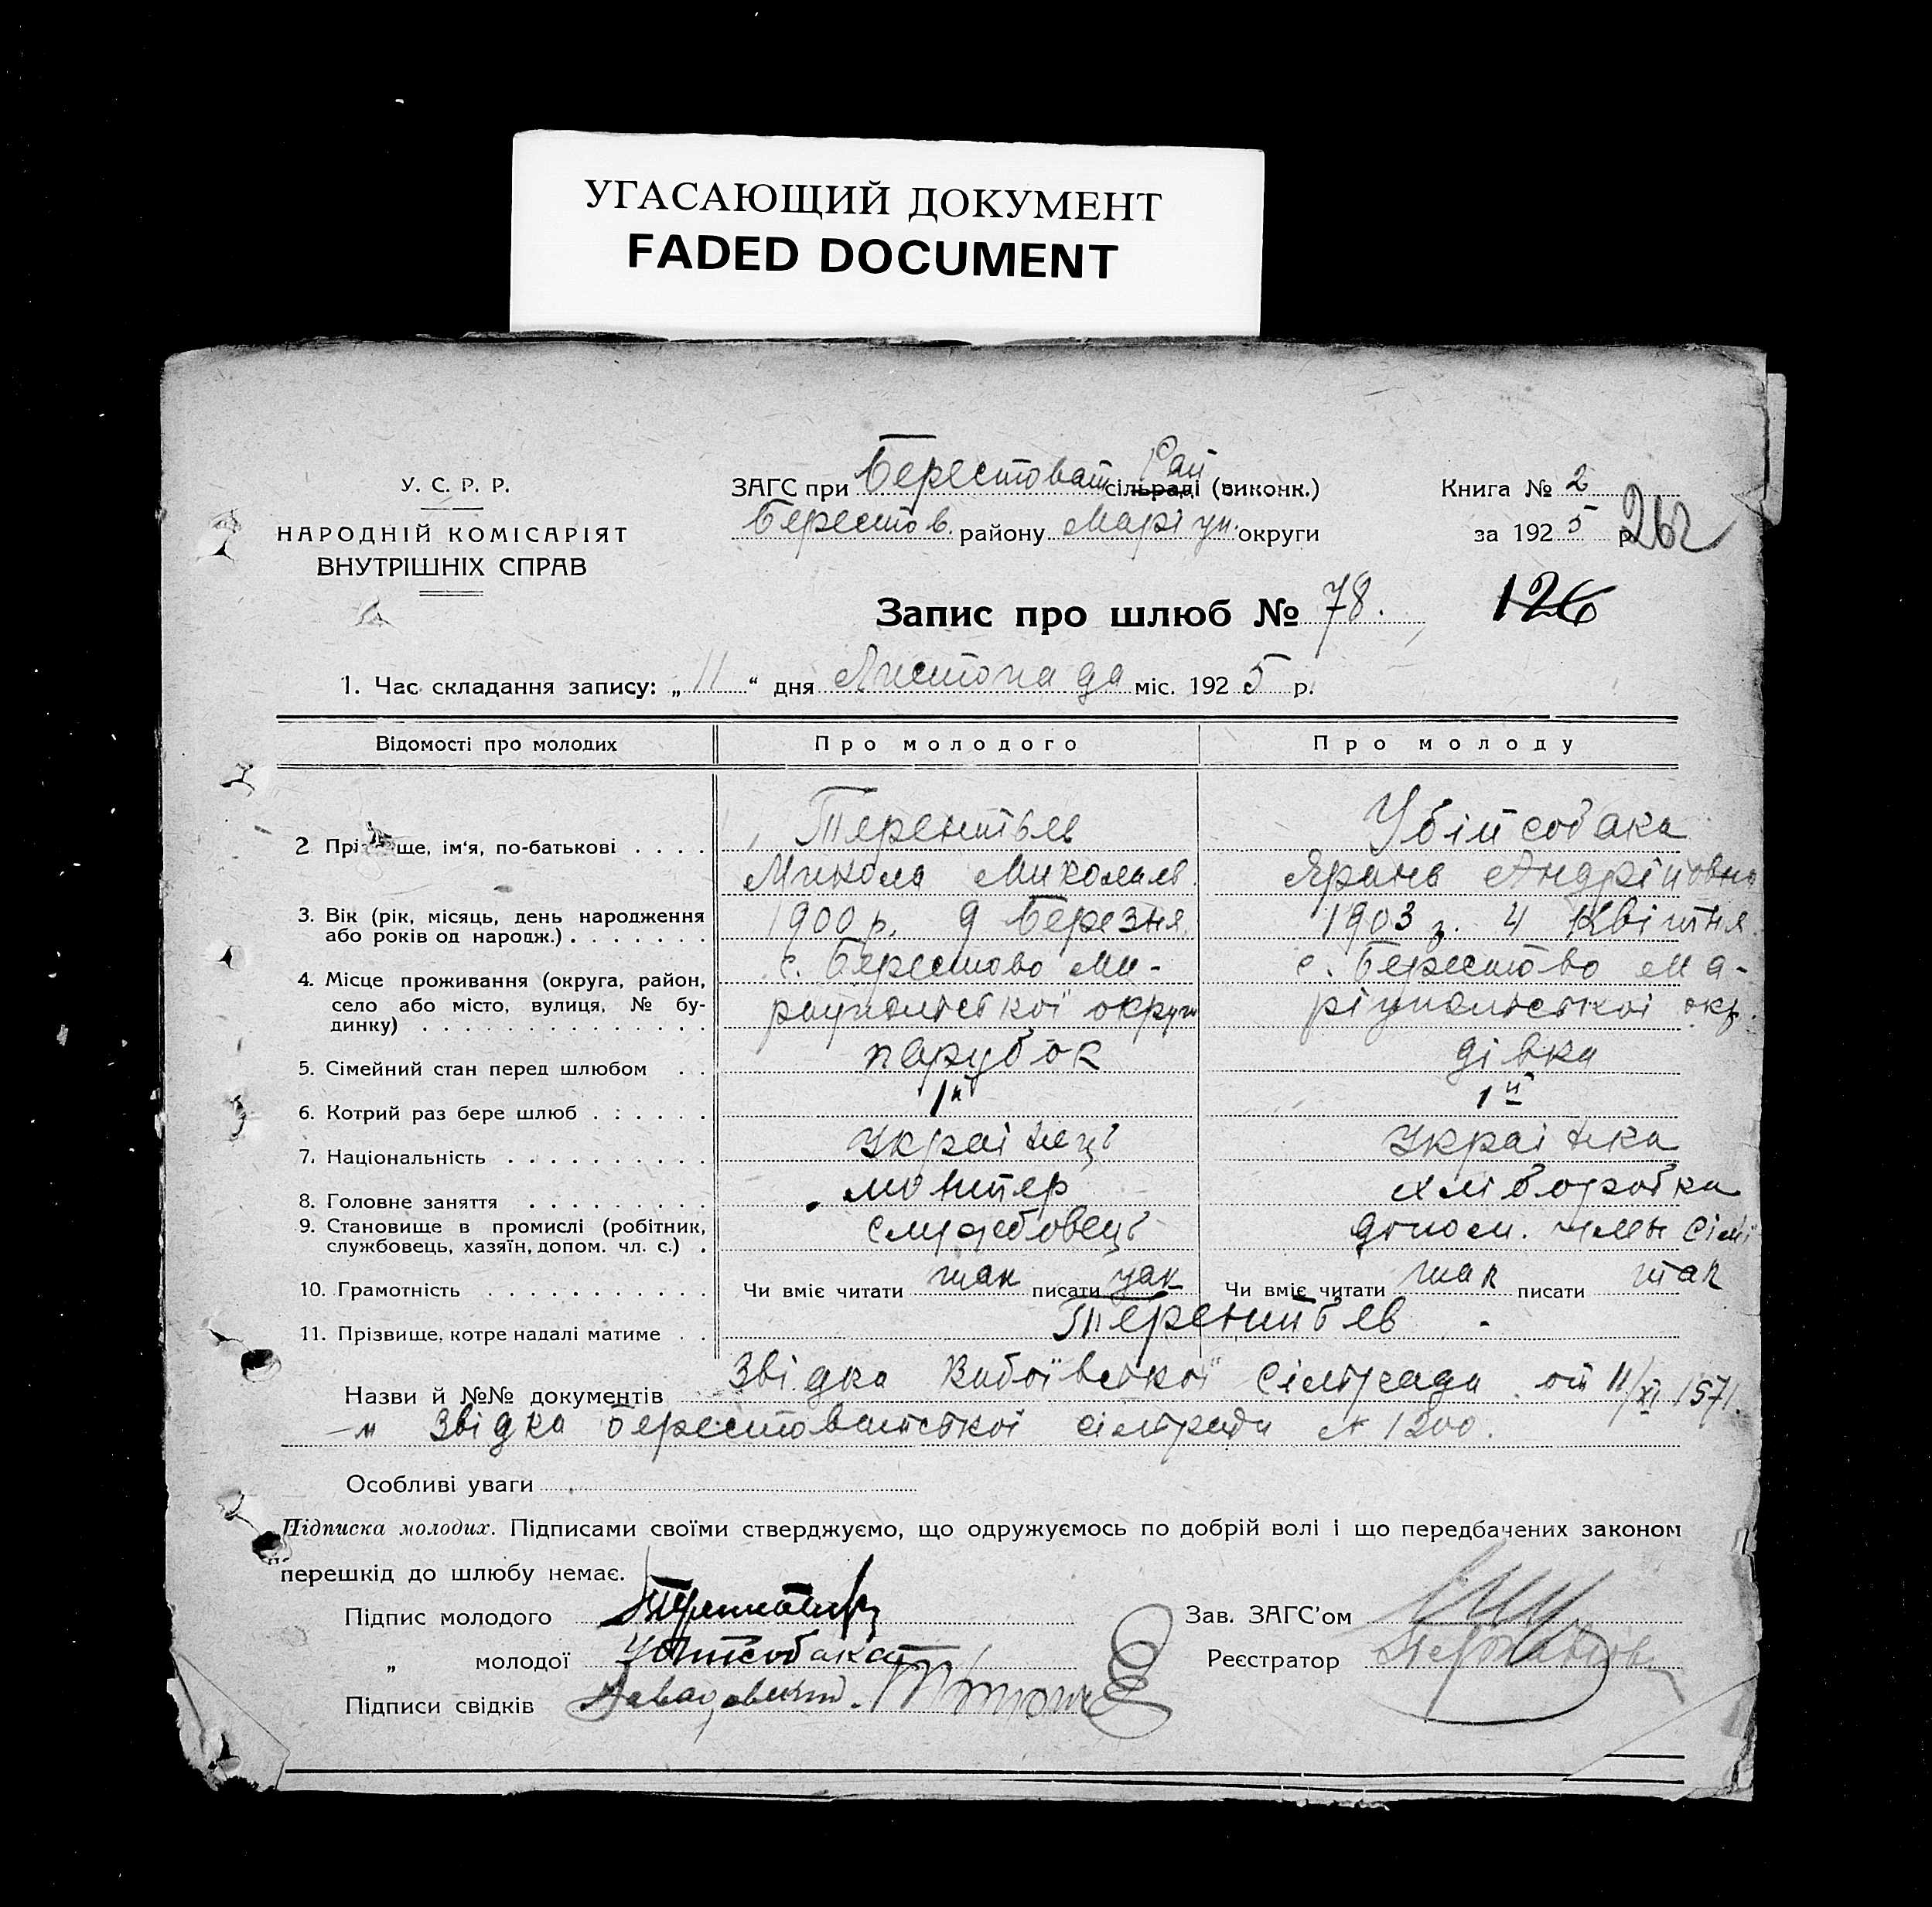 УГАСАЮЩИЙ ДОКУМЕНТ
FADED DOCUMENT
У. С. Р. Р.
НАРОДНІЙ КОМІСАРІЯТ
ВНУТРІШНІХ СПРАВ
ЗАГС при Берестоват сільраді Рай (виконк.)
Берестов. району Маріуп. округи
Книга № 2
за 1925 р.
262
Запис про шлюб № 78.
126
1. Час складання запису: „ 11 “ дня Листопада міс. 1925 р.
Відомості про молодих Про молодого Про молоду
2 Прі ще, ім'я, по-батькові . . . . Терентьев Убійсобака
Микола Миколаїв. Ярина Андріївна
3. Вік (рік, місяць, день народження 1900 р. 9 березня. 1903 р. 4 Квітня.
або років од народж.) . . . . . . .
4. Місце проживання (округа, район, с. Берестово Ма- с. Берестово Ма-
село або місто, вулиця, № бу- ріупольської округи ріупольської окр.
динку) . . . . . . . . . . . . . .
5. Сімейний стан перед шлюбом . . парубок дівка
6. Котрий раз бере шлюб . : . . . . 1й 1й
7. Національність . . . . . . . . . . Українець Українка
8. Головне заняття . . . . . . . . . монтер хліборобка
9. Становище в промислі (робітник, службовець допом. член сімї
службовець, хазяїн, допом. чл. с.) .
10. Грамотність . . . . . . . . . . . Чи вміє читати так писати так Чи вміє читати так писати так
11. Прізвище, котре надалі матиме . . Терентьев -
Назви й №№ документів Звідка сільради от 11/XI 1571.
и Звідка Берестоватської сільради № 1200.
Особливі уваги
Підписка молодих. Підписами своїми стверджуємо, що одружуємось по добрій волі і що передбачених законом
перешкід до шлюбу немає.
Підпис молодого
Зав. ЗАГС'ом
„ молодої Убийсобака
Реєстратор
Підписи свідків